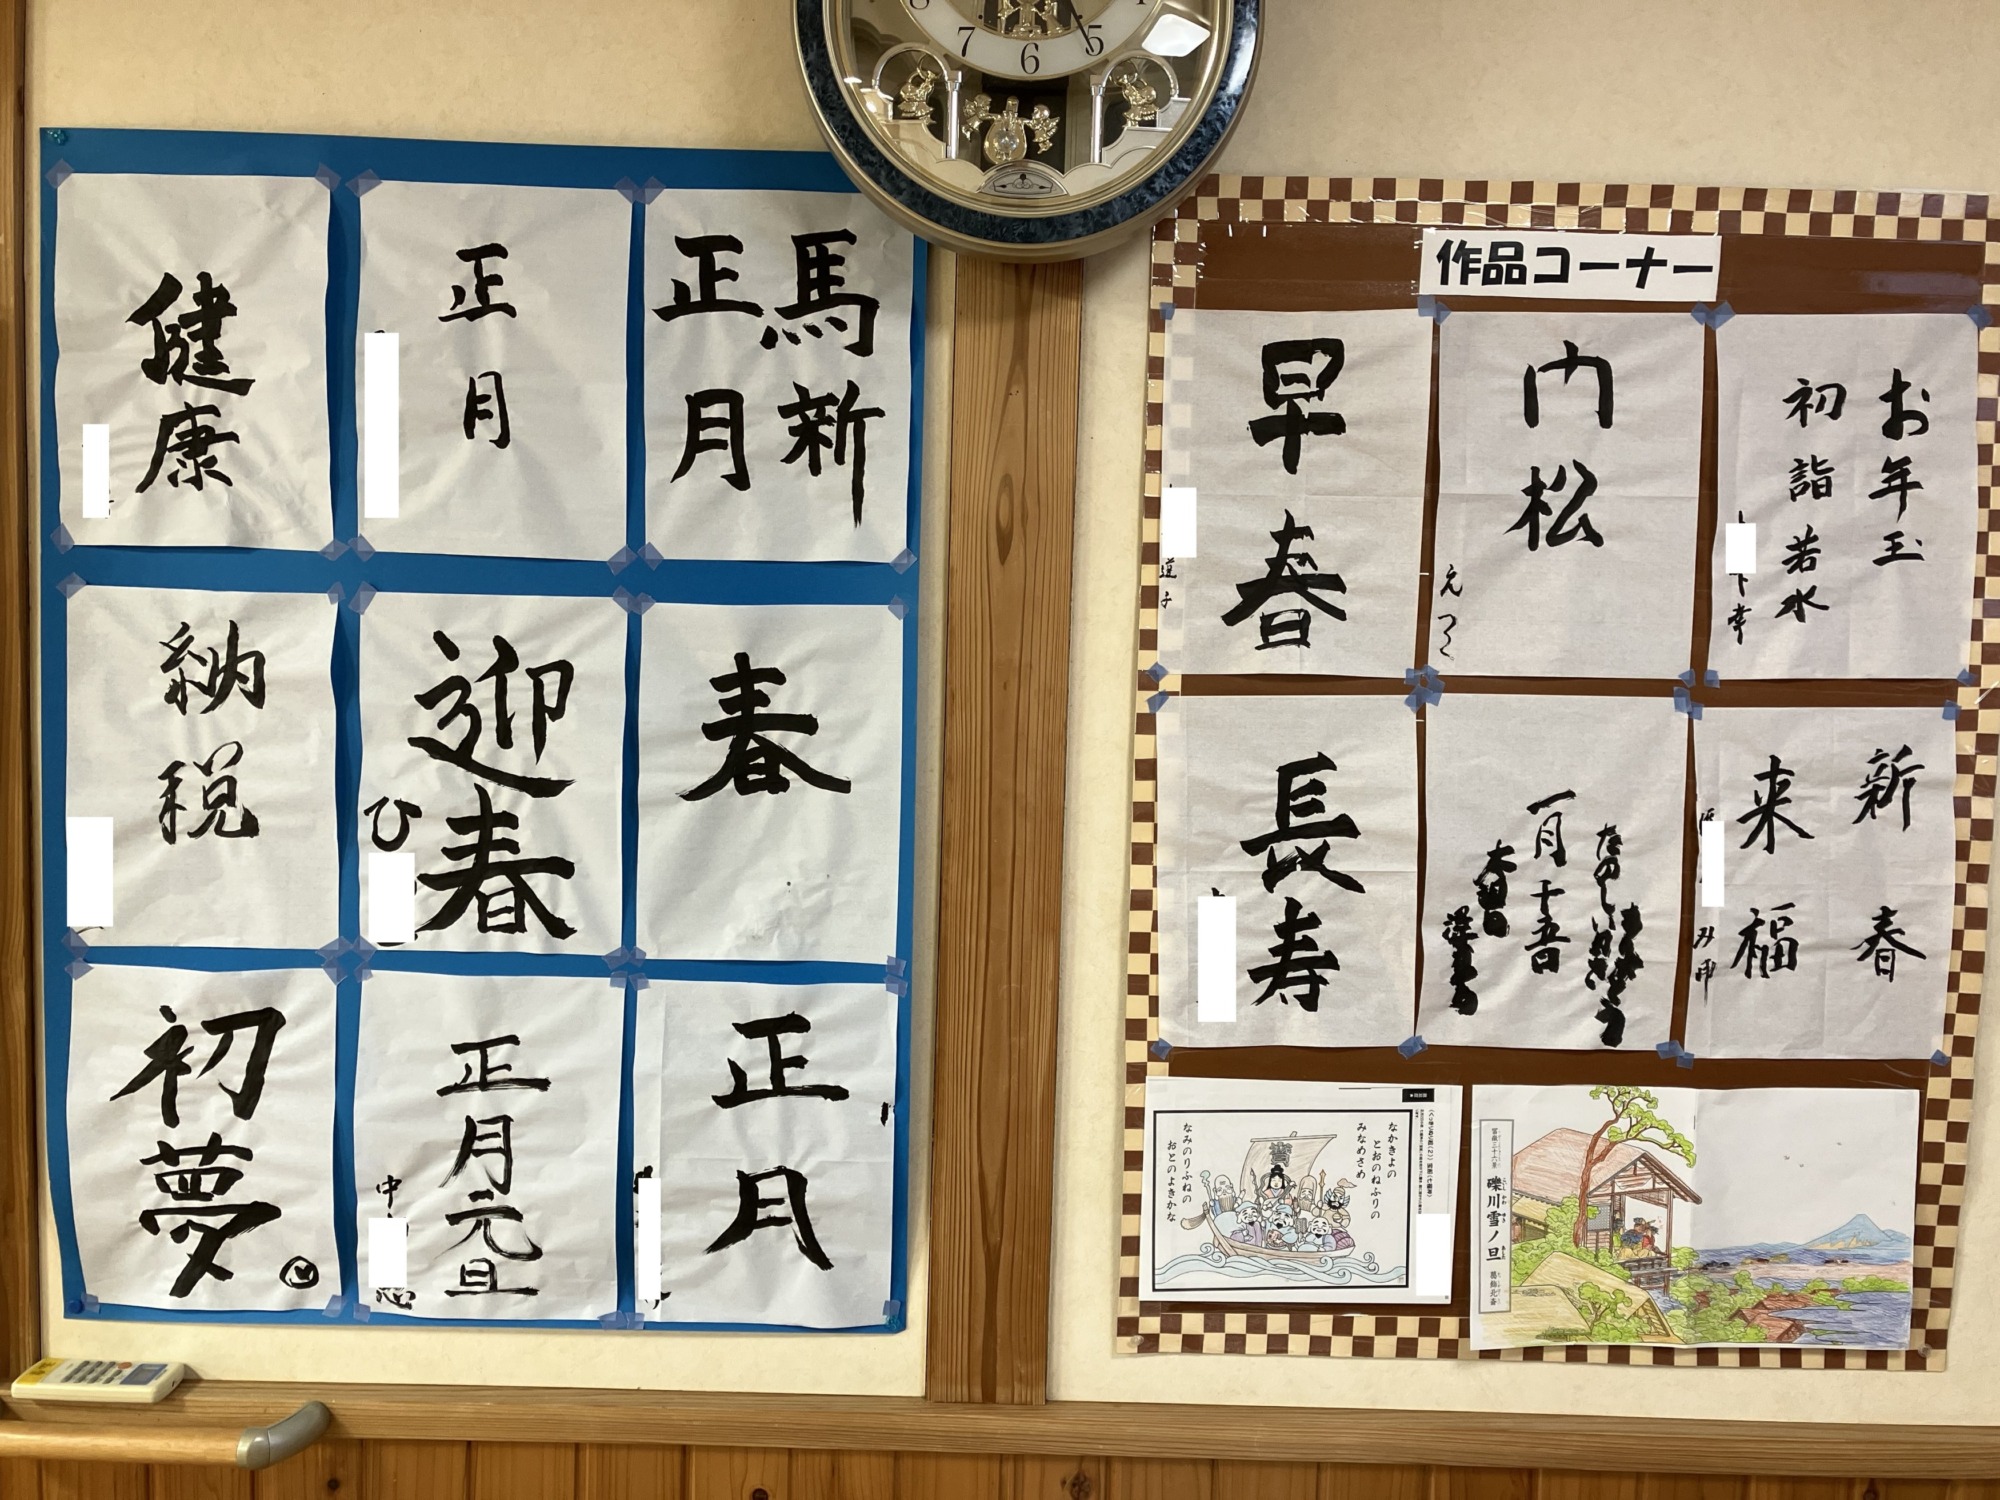 8
7
6
5
4
健康
正月
馬新
正月
納税
迎春
ひ
春
初夢
正月元旦
中
正月
作品コーナー
早春
道子
門松
お年玉
初詣若水
下幸
長寿
一月十五日
新春
来福
なかきよの
とおのねふりの
みなめさめ
なみのりふねの
おとのよきかな
寶
冨嶽三十六景
礫川雪ノ旦
こいしかわゆきのあした
葛飾北斎